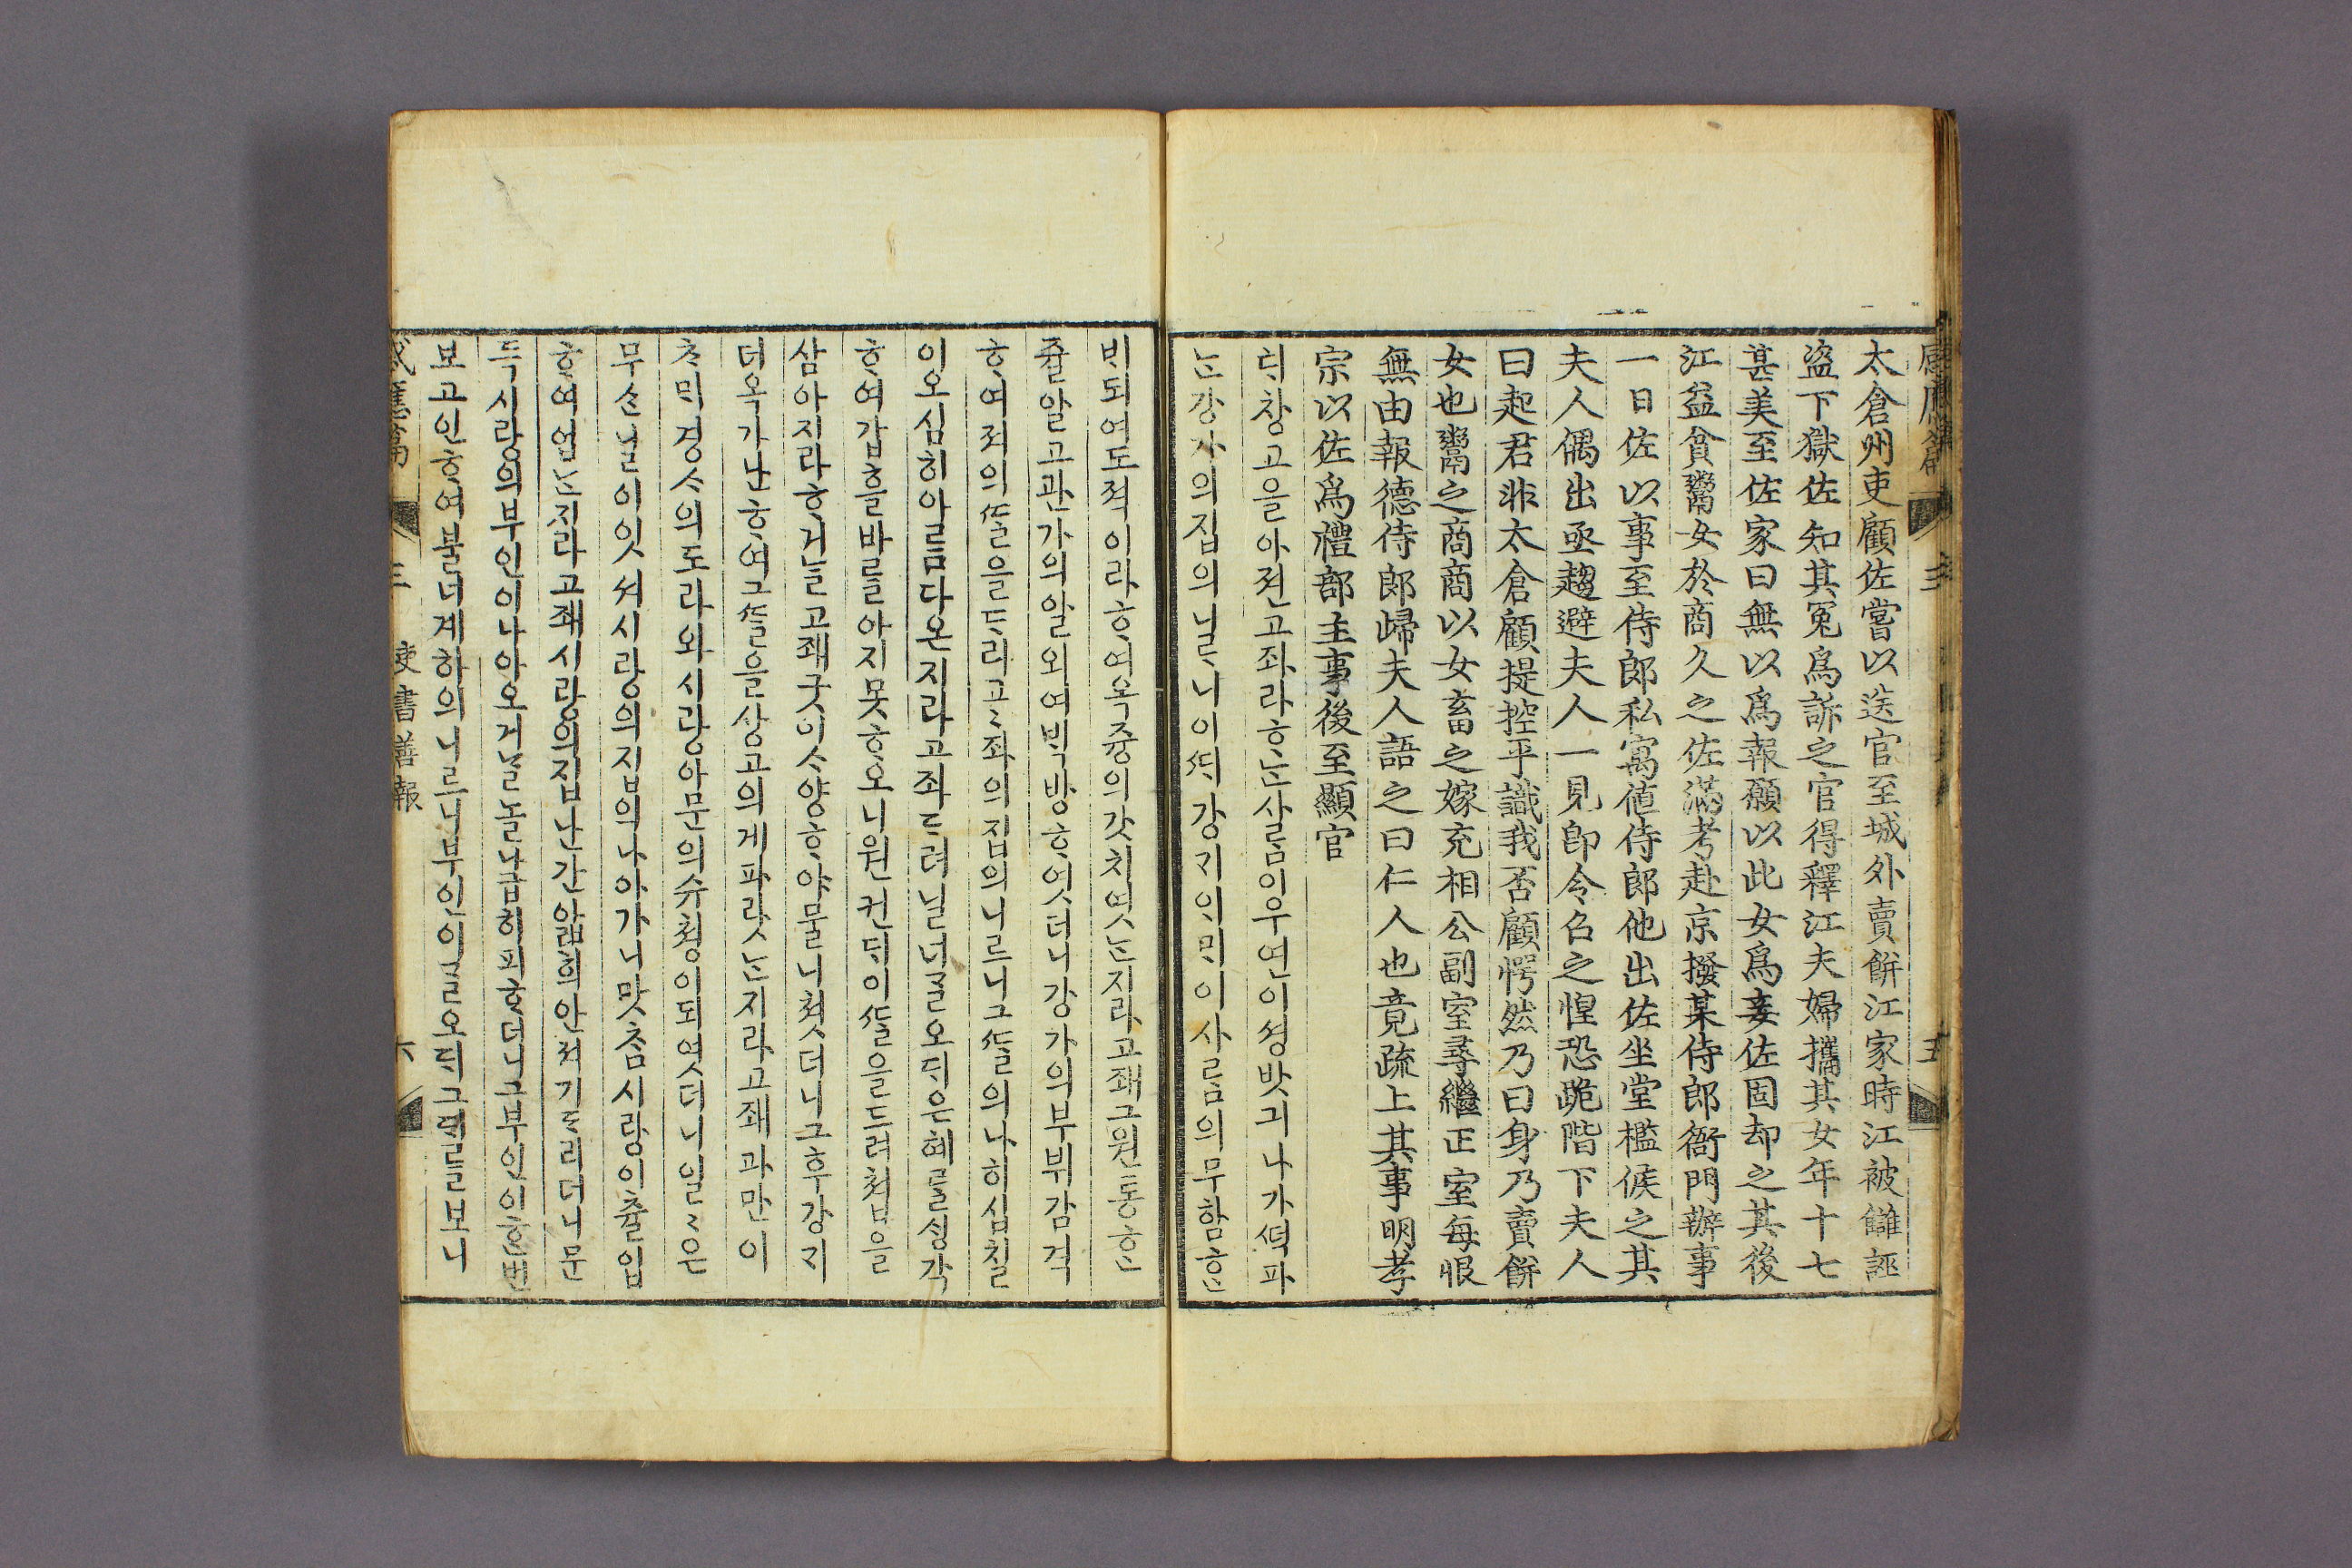 太倉州吏顧佐嘗以送官至城外賣餅江家時江被讎誣
盜下獄佐知其冤爲訴之官得釋江夫婦攜其女年十七
甚美至佐家曰無以爲報願以此女爲妾佐固却之其後
江益貧鬻女於商久之佐滿考赴京撥某侍郎衙門辦事
一日佐以事至侍郎私寓値侍郎他出佐坐堂檻候之其
夫人偶出亟趨避夫人一見卽令召之惶恐跪階下夫人
曰起君非太倉顧提控乎識我否顧愕然乃曰身乃賣餅
女也鬻之商商以女畜之嫁充相公副室尋繼正室每恨
無由報德侍郞歸夫人語之曰仁人也竟疏上其事明孝
宗以佐爲禮部主事後至顯官
ᄐᆡ창고을아젼고좌라ᄒᆞᄂᆞᆫ사ᄅᆞᆷ이우연이셩밧긔나가ᄯᅥᆨ파
ᄂᆞᆫ강가의집의니ᄅᆞ니이ᄯᅢ강기이ᄆᆡ이사ᄅᆞᆷ의무함ᄒᆞᆫ
ᄇᆡ되여도젹이라ᄒᆞ여옥즁의갓치엿ᄂᆞᆫ지라고좨그원통ᄒᆞᆫ
쥴알고관가의알외여ᄇᆡᆨ방ᄒᆞ엿더니강가의부뷔감격
ᄒᆞ여좌의ᄯᅳᆯ을ᄃᆞ리고고좌의집의니르니그ᄯᆞᆯ의나히십칠
이오심히아름다온지라고좌ᄃᆞ려닐너ᄀᆞᆯ오ᄃᆡ은혜ᄅᆞᆯᄉᆡᆼ각
ᄒᆞ여갑흘바ᄅᆞᆯ아지못ᄒᆞ오니원컨ᄃᆡ이ᄯᆞᆯ을드려쳡을
삼아지라ᄒᆞ거ᄂᆞᆯ고좨구이ᄉᆞ양ᄒᆞ야물니쳣더니그후강지
더옥가난ᄒᆞ여그ᄯᆞᆯ을샹고의게파랏ᄂᆞᆫ지라고좨과만이
ᄎᆞᄆᆡ경ᄉᆞ의도라와시랑아문의슈쳥이되엿더니일일은
무ᄉᆞᆫ닐이잇셔시랑의집의나아가니맛ᄎᆞᆷ시랑이츌입
ᄒᆞ여업ᄂᆞᆫ지라고좨시랑의집난간앏희안져기ᄃᆞ리더니문
득시랑의부인이나아오거ᄂᆞᆯ놀나급히피ᄒᆞ더니그부인이ᄒᆞᆫ번
보고인ᄒᆞ여불너계하의니르니부인이ᄀᆞᆯ오ᄃᆡ그ᄃᆡᄅᆞᆯ보니
感應篇 三 吏書善報 六